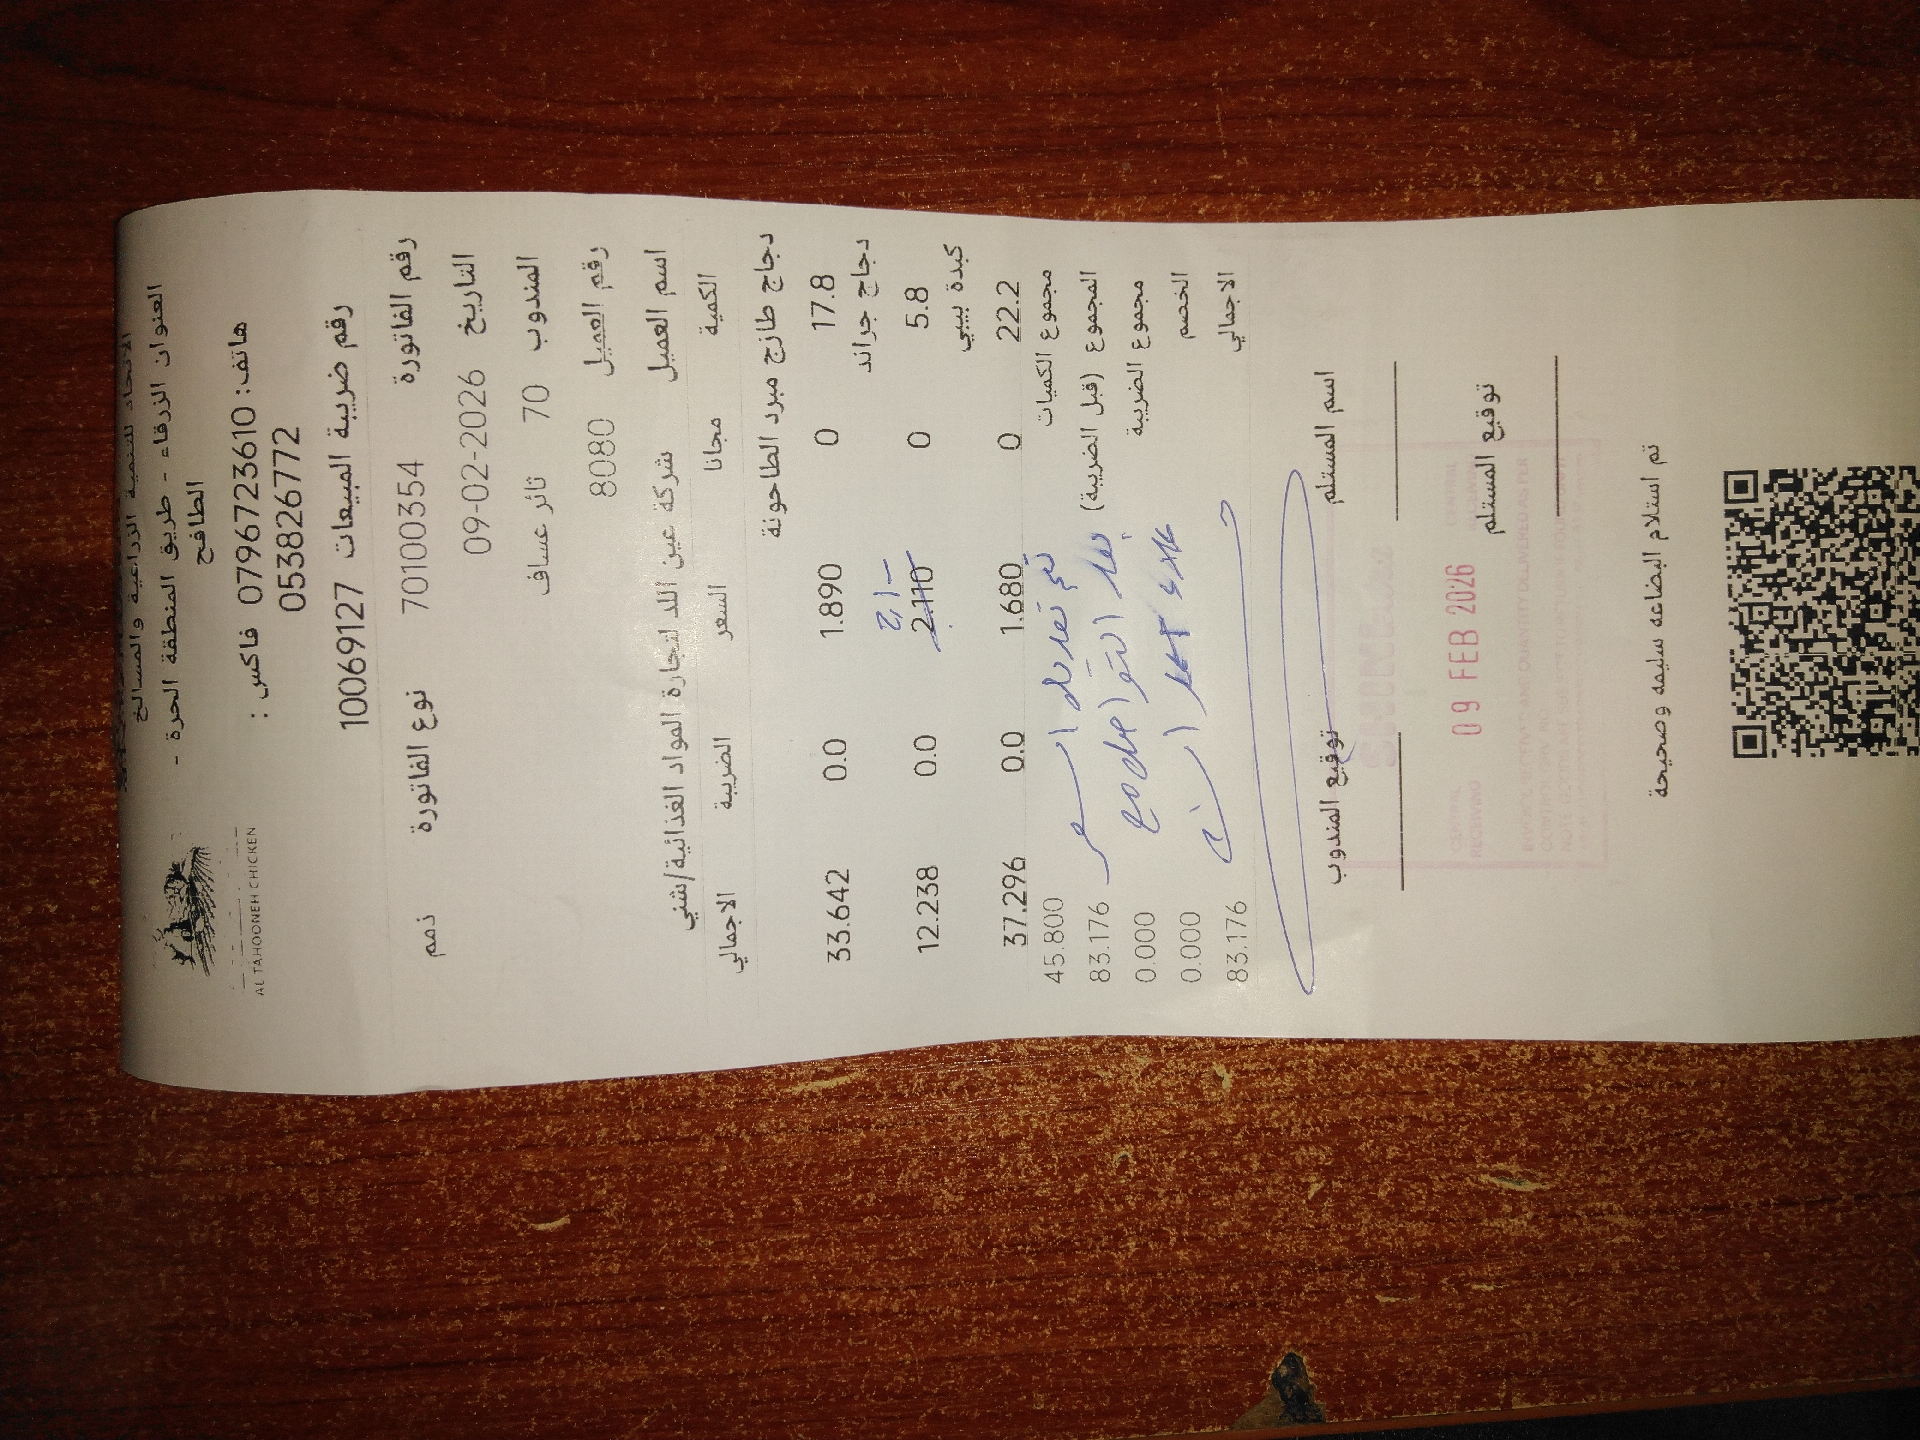 الاتحاد للتنمية الزراعية والمسالخ
العنوان الزرقاء - طريق المنطقة الحرة -
الطافح
هاتف: 0796723610 فاكس :
053826772
AL TAHOONEH CHICKEN
رقم ضريبة المبيعات 10069127
رقم الفاتورة 70100354 نوع الفاتورة ذمم
التاريخ 09-02-2026
المندوب 70 ثائر عساف
رقم العميل 8080
اسم العميل شركة عين اللد لتجارة المواد الغذائية/شني
الكمية مجانا السعر الضريبة الاجمالي
دجاج طازج مبرد الطاحونة
17.8 0 1.890 0.0 33.642
دجاج جراند
5.8 0 2.110 0.0 12.238
كبدة بيبي
22.2 0 1.680 0.0 37.296
مجموع الكميات 45.800
المجموع (قبل الضريبة) 83.176
مجموع الضريبة 0.000
الخصم 0.000
الاجمالي 83.176
تم تعديل السعر
اسم المستلم
توقيع المندوب
توقيع المستلم
09 FEB 2026
RECEIVING
تم استلام البضاعه سليمه وصحيحة